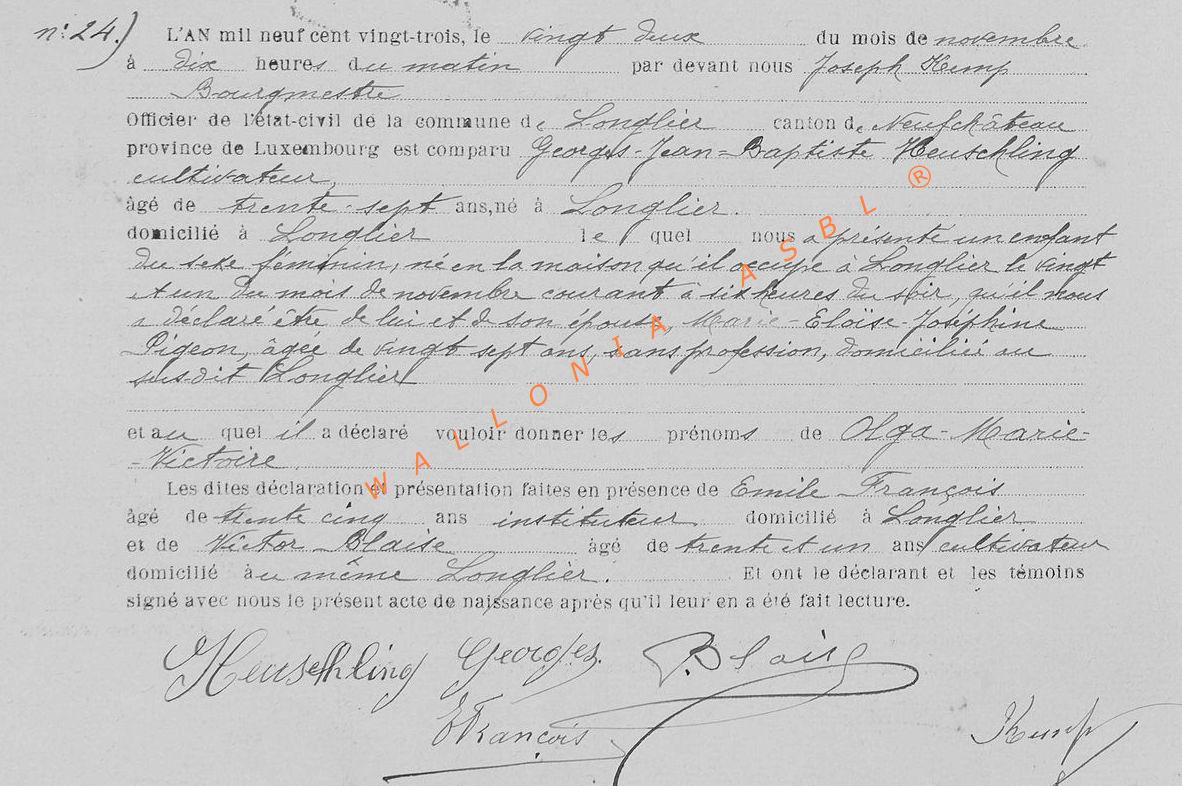 n: 24.) L'AN mil neuf cent vingt-trois, le vingt deux du mois de novembre
à dix heures du matin par devant nous Joseph Kemp
Bourgmestre
Officier de l'état-civil de la commune de Longlier canton de Neufchâteau
province de Luxembourg est comparu Georges-Jean-Baptiste Heuschling
cultivateur,
âgé de trente-sept ans, né à Longlier.
domicilié à Longlier le quel nous a présenté un enfant
du sexe féminin, né en la maison qu'il occupe à Longlier le vingt
et un du mois de novembre courant à six heures du soir, qu'il nous
a déclaré être de lui et de son épouse, Marie-Eloïse-Joséphine
Pigeon, âgée de vingt sept ans, sans profession, domiciliée au
susdit Longlier
et au quel il a déclaré vouloir donner les prénoms de Olga-Marie-
-Victoire.
Les dites déclaration et présentation faites en présence de Emile François
âgé de trente cinq ans instituteur domicilié à Longlier
et de Victor Blaise âgé de trente et un ans cultivateur
domicilié au même Longlier. Et ont le déclarant et les témoins
signé avec nous le présent acte de naissance après qu'il leur en a été fait lecture.
Heuschling Georges. V. Blaise
E François
Kemp
WALLONIA ASBL ®